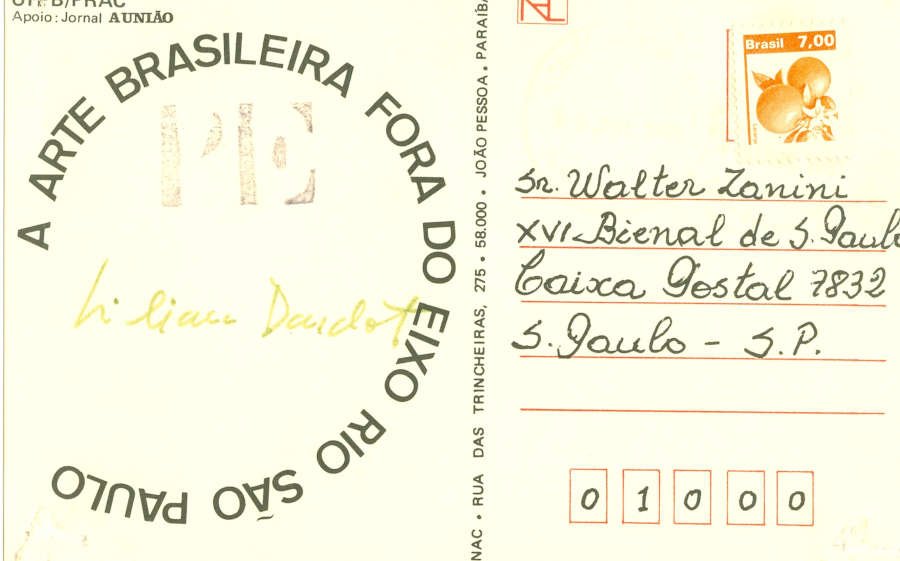 UFPB/PRAC
Apoio: Jornal A UNIÃO
A ARTE BRASILEIRA FORA DO EIXO RIO SÃO PAULO
PE
Liliane Dardot
NAC • RUA DAS TRINCHEIRAS, 275 • 58.000 • JOÃO PESSOA • PARAÍBA
Brasil 7,00
Sr. Walter Zanini
XVI Bienal de S. Paulo
Caixa Postal 7832
S. Paulo - S.P.
0 1 0 0 0